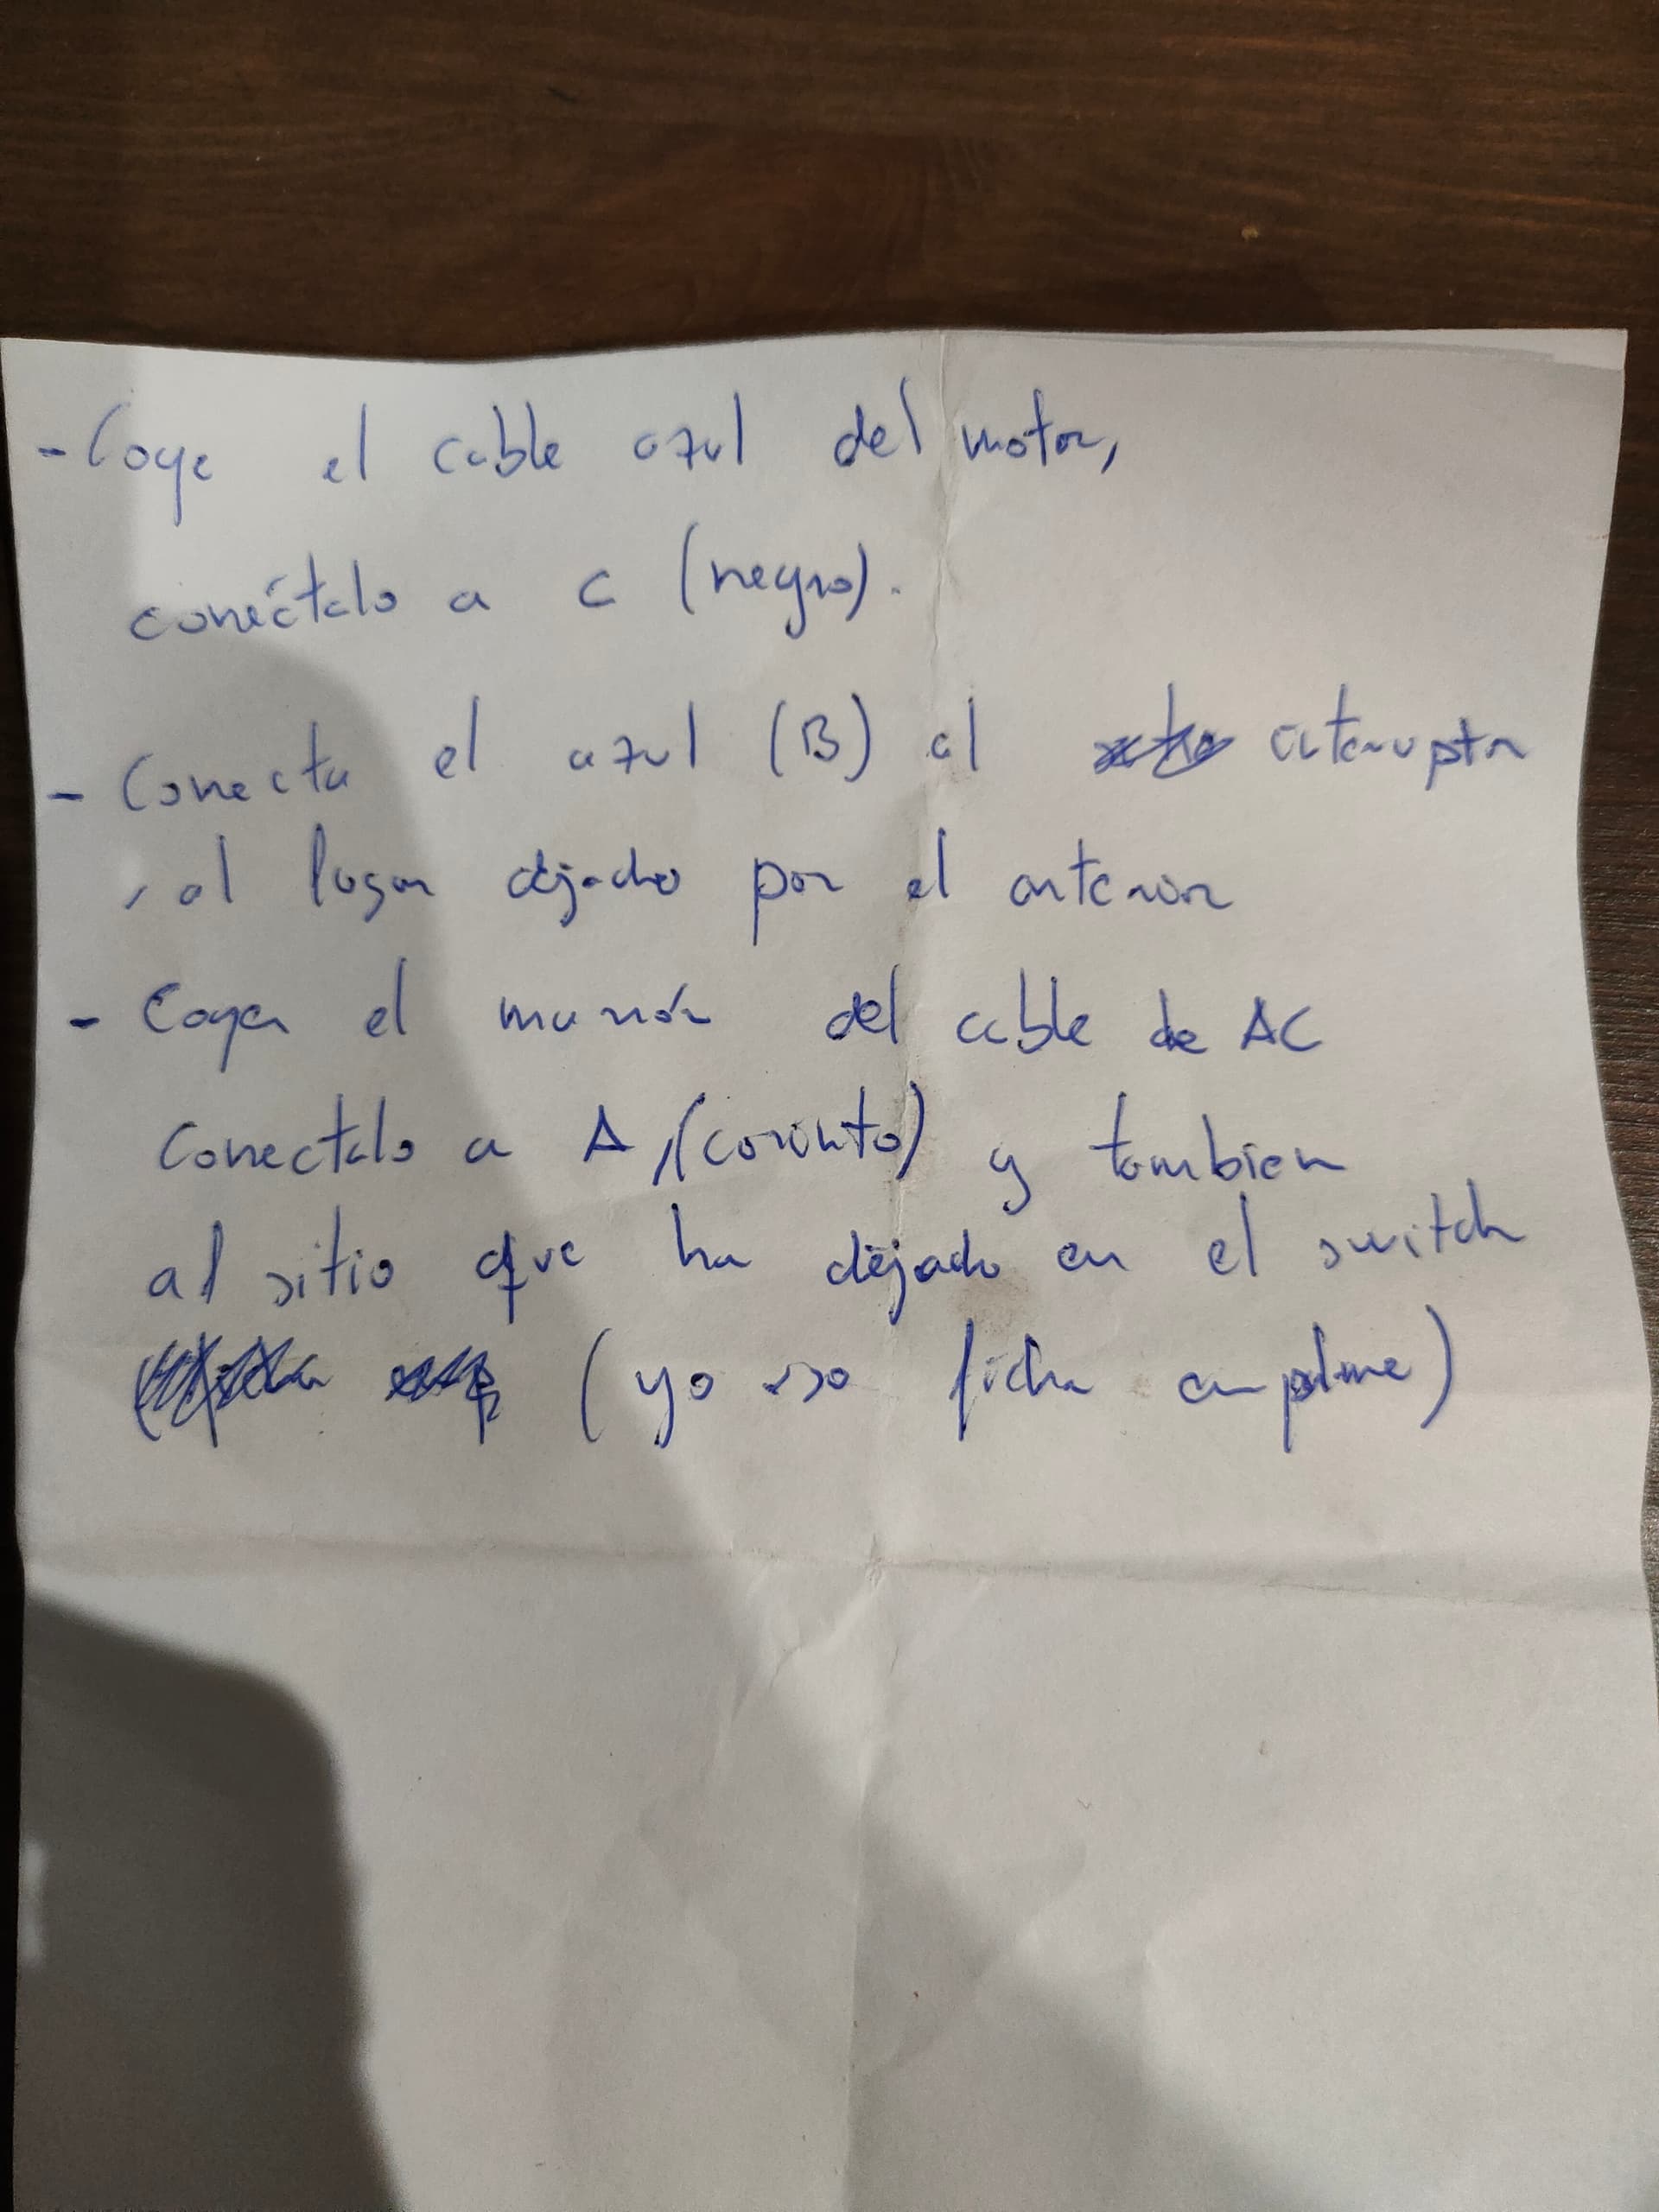 - Coge el cable azul del motor,
conéctalo a C (negro).
- Conecta el azul (B) al interruptor
, al lugar dejado por el anterior
- Coger el marrón del cable de AC
Conectalo a A, (corinto) y tambien
al sitio que ha dejado en el switch
(yo uso ficha empalme)